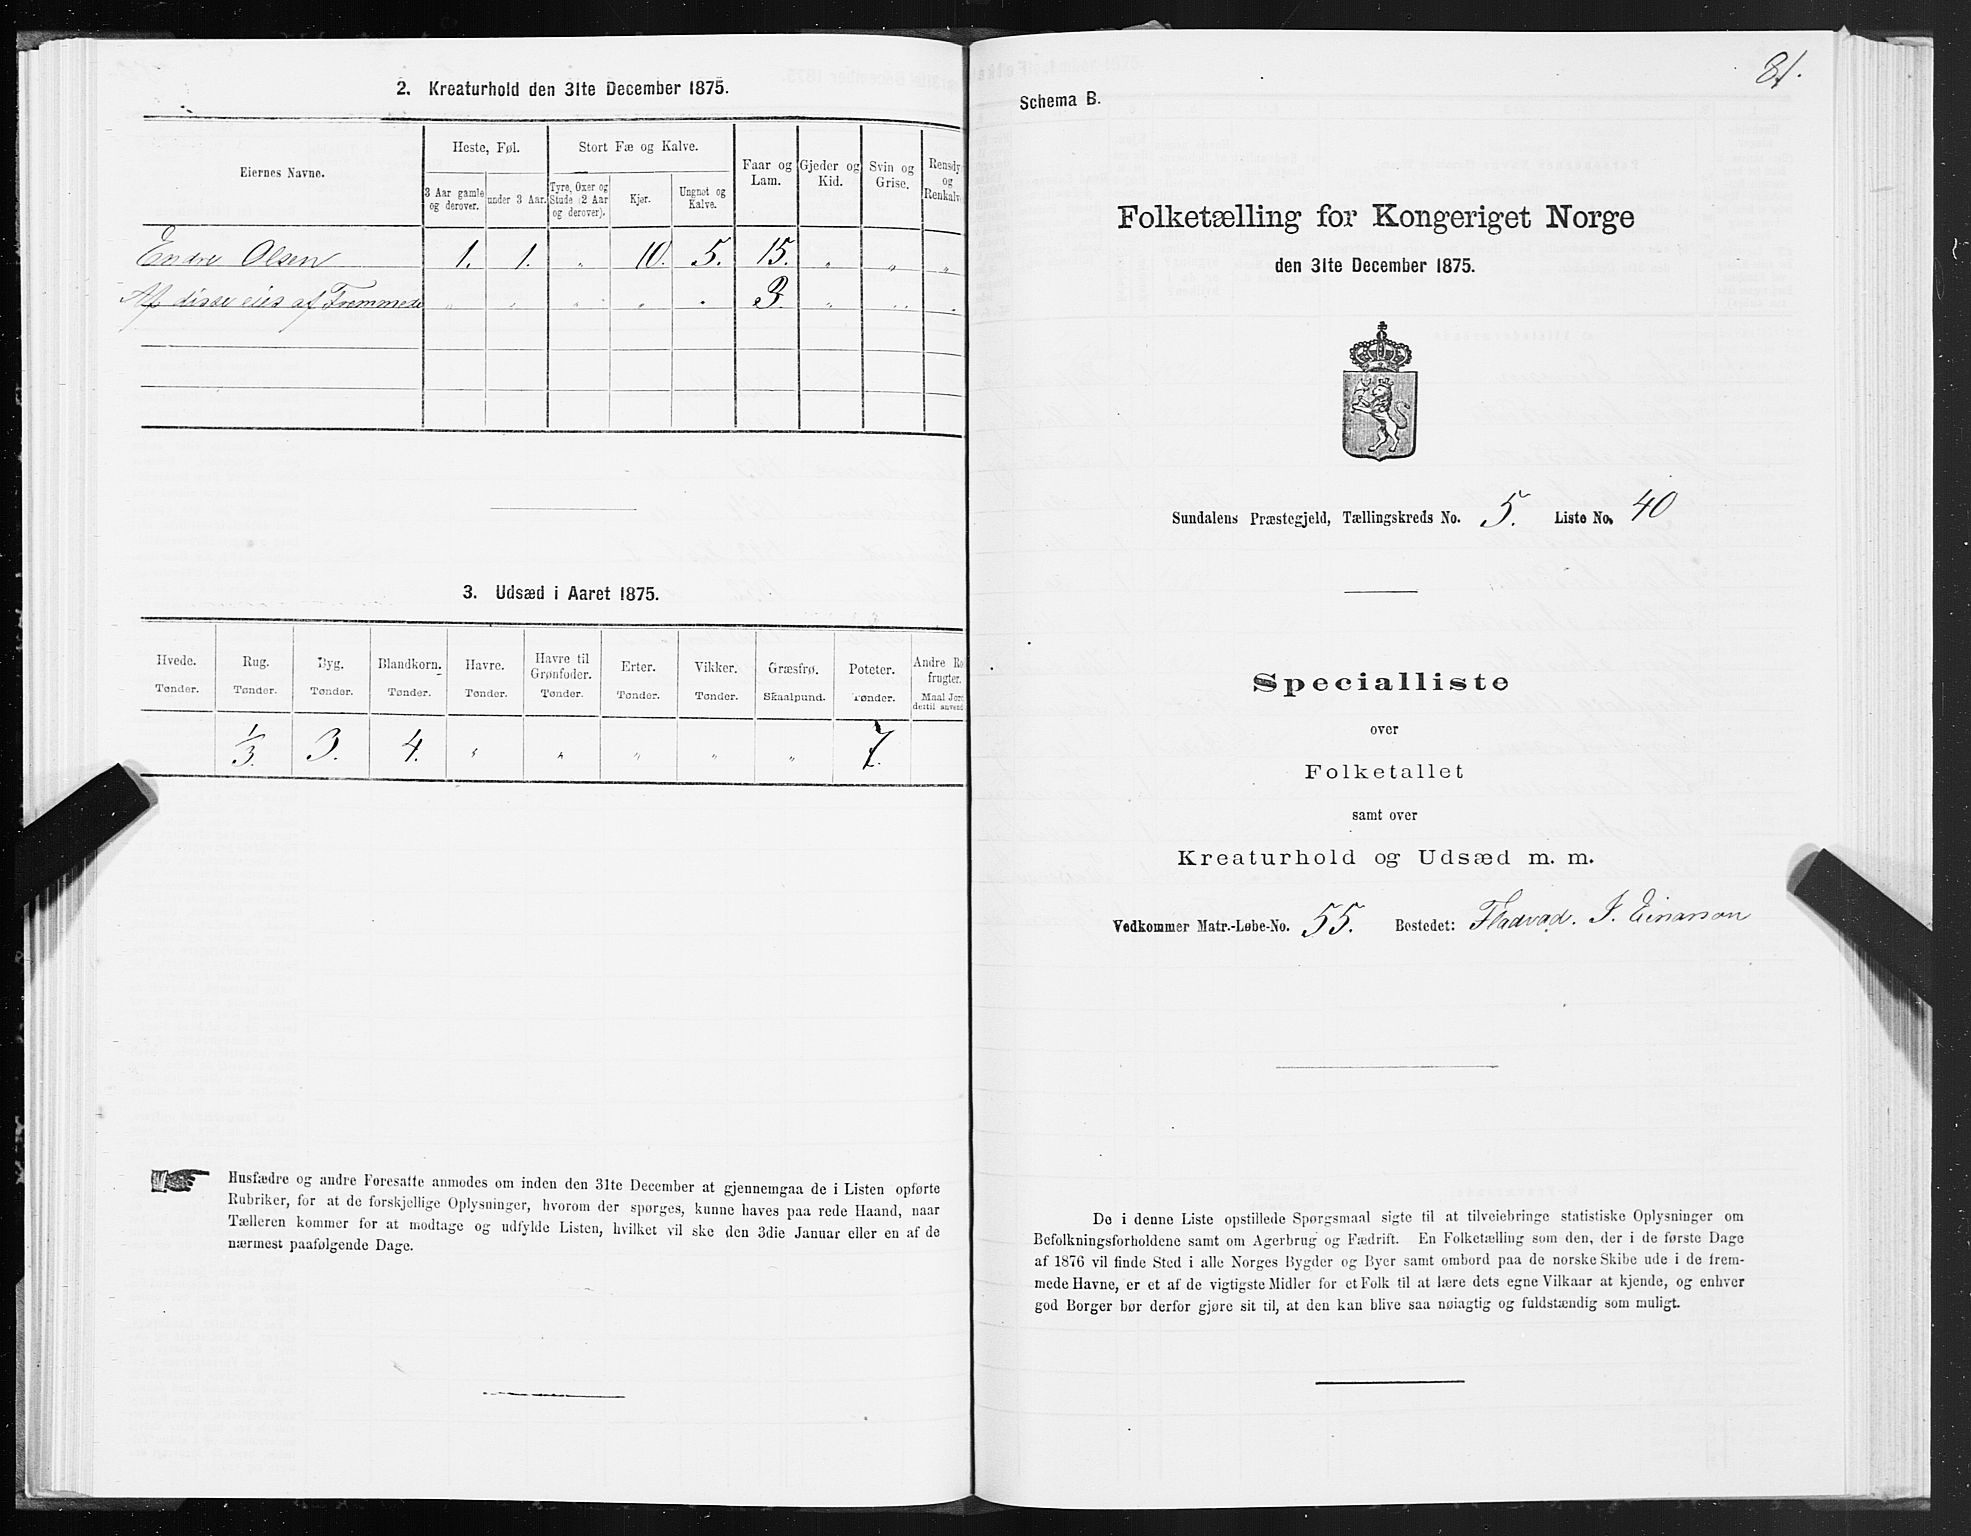 2. Kreaturhold den 31te December 1875.
Eiernes Navne.
Heste, Føl.
Stort Fæ og Kalve.
Faar og Lam.
Gjeder og Kid.
Svin og Grise.
Rensdy og Renkalv
3 Aar gamle og derover.
under 3 Aar.
Tyre, Oxer og Stude (2 Aar og derover).
Kjør.
Ungnøt og Kalve.
Endre Olsen 1. 1. „ 10. 5. 15. „ „ „
Af disse eies af Fremmede „ „ „ „ „ 3. „ „ „
3. Udsæd i Aaret 1875.
Hvede. Rug. Byg. Blandkorn. Havre. Havre til Grønfoder. Erter. Vikker. Græsfrø. Poteter. Andre Ro frugter.
Tønder. Tønder. Tønder. Tønder. Tønder. Tønder. Tønder. Tønder. Skaalpund. Tønder. Maal Jord dertil anvend
1/3. 3. 4. „ „ „ „ „ 7.
Husfædre og andre Foresatte anmodes om inden den 31te December at gjennemgaa de i Listen opførte
Rubriker, for at de forskjellige Oplysninger, hvorom der spørges, kunne haves paa rede Haand, naar
Tælleren kommer for at modtage og udfylde Listen, hvilket vil ske den 3die Januar eller en af de
nærmest paafølgende Dage.
81.
Schema B.
Folketælling for Kongeriget Norge
den 31te December 1875.
Sundalens Præstegjeld, Tællingskreds No. 5. Liste No. 40
Specialliste
over
Folketallet
samt over
Kreaturhold og Udsæd m. m.
Vedkommer Matr.-Løbe-No. 55. Bostedet: Fladvad. I. Einarson
De i denne Liste opstillede Spørgsmaal sigte til at tilveiebringe statistiske Oplysninger om
Befolkningsforholdene samt om Agerbrug og Fædrift. En Folketælling som den, der i de første Dage
af 1876 vil finde Sted i alle Norges Bygder og Byer samt ombord paa de norske Skibe ude i de frem-
mede Havne, er et af de vigtigste Midler for et Folk til at lære dets egne Vilkaar at kjende, og enhver
god Borger bør derfor gjøre sit til, at den kan blive saa nøiagtig og fuldstændig som muligt.